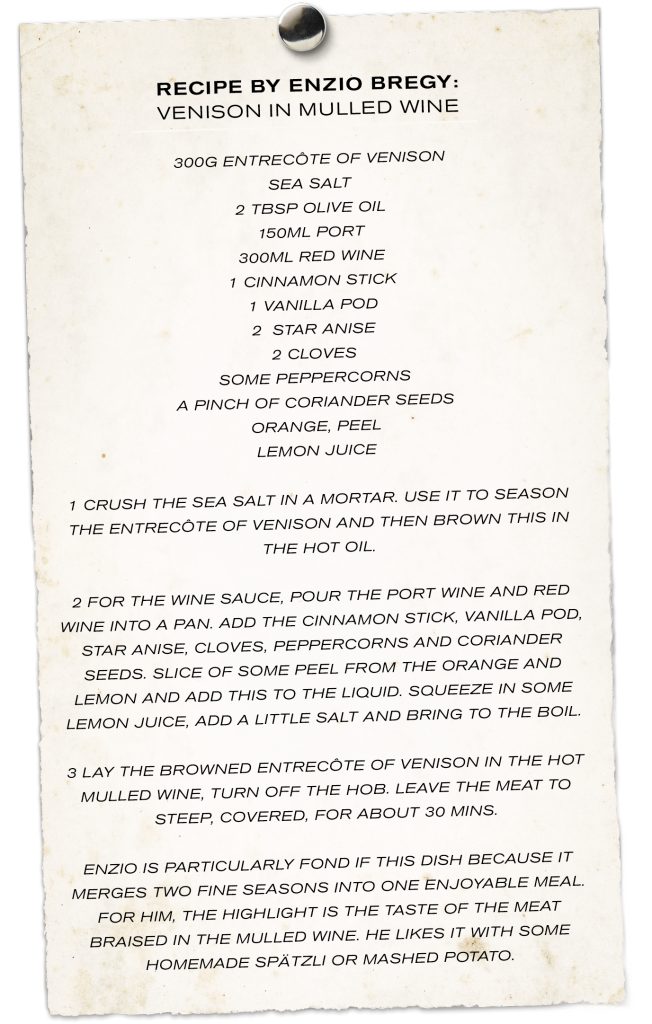 RECIPE BY ENZIO BREGY:
VENISON IN MULLED WINE
300G ENTRECÔTE OF VENISON
SEA SALT
2 TBSP OLIVE OIL
150ML PORT
300ML RED WINE
1 CINNAMON STICK
1 VANILLA POD
2 STAR ANISE
2 CLOVES
SOME PEPPERCORNS
A PINCH OF CORIANDER SEEDS
ORANGE, PEEL
LEMON JUICE
1 CRUSH THE SEA SALT IN A MORTAR. USE IT TO SEASON
THE ENTRECÔTE OF VENISON AND THEN BROWN THIS IN
THE HOT OIL.
2 FOR THE WINE SAUCE, POUR THE PORT WINE AND RED
WINE INTO A PAN. ADD THE CINNAMON STICK, VANILLA POD,
STAR ANISE, CLOVES, PEPPERCORNS AND CORIANDER
SEEDS. SLICE OF SOME PEEL FROM THE ORANGE AND
LEMON AND ADD THIS TO THE LIQUID. SQUEEZE IN SOME
LEMON JUICE, ADD A LITTLE SALT AND BRING TO THE BOIL.
3 LAY THE BROWNED ENTRECÔTE OF VENISON IN THE HOT
MULLED WINE, TURN OFF THE HOB. LEAVE THE MEAT TO
STEEP, COVERED, FOR ABOUT 30 MINS.
ENZIO IS PARTICULARLY FOND IF THIS DISH BECAUSE IT
MERGES TWO FINE SEASONS INTO ONE ENJOYABLE MEAL.
FOR HIM, THE HIGHLIGHT IS THE TASTE OF THE MEAT
BRAISED IN THE MULLED WINE. HE LIKES IT WITH SOME
HOMEMADE SPÄTZLI OR MASHED POTATO.